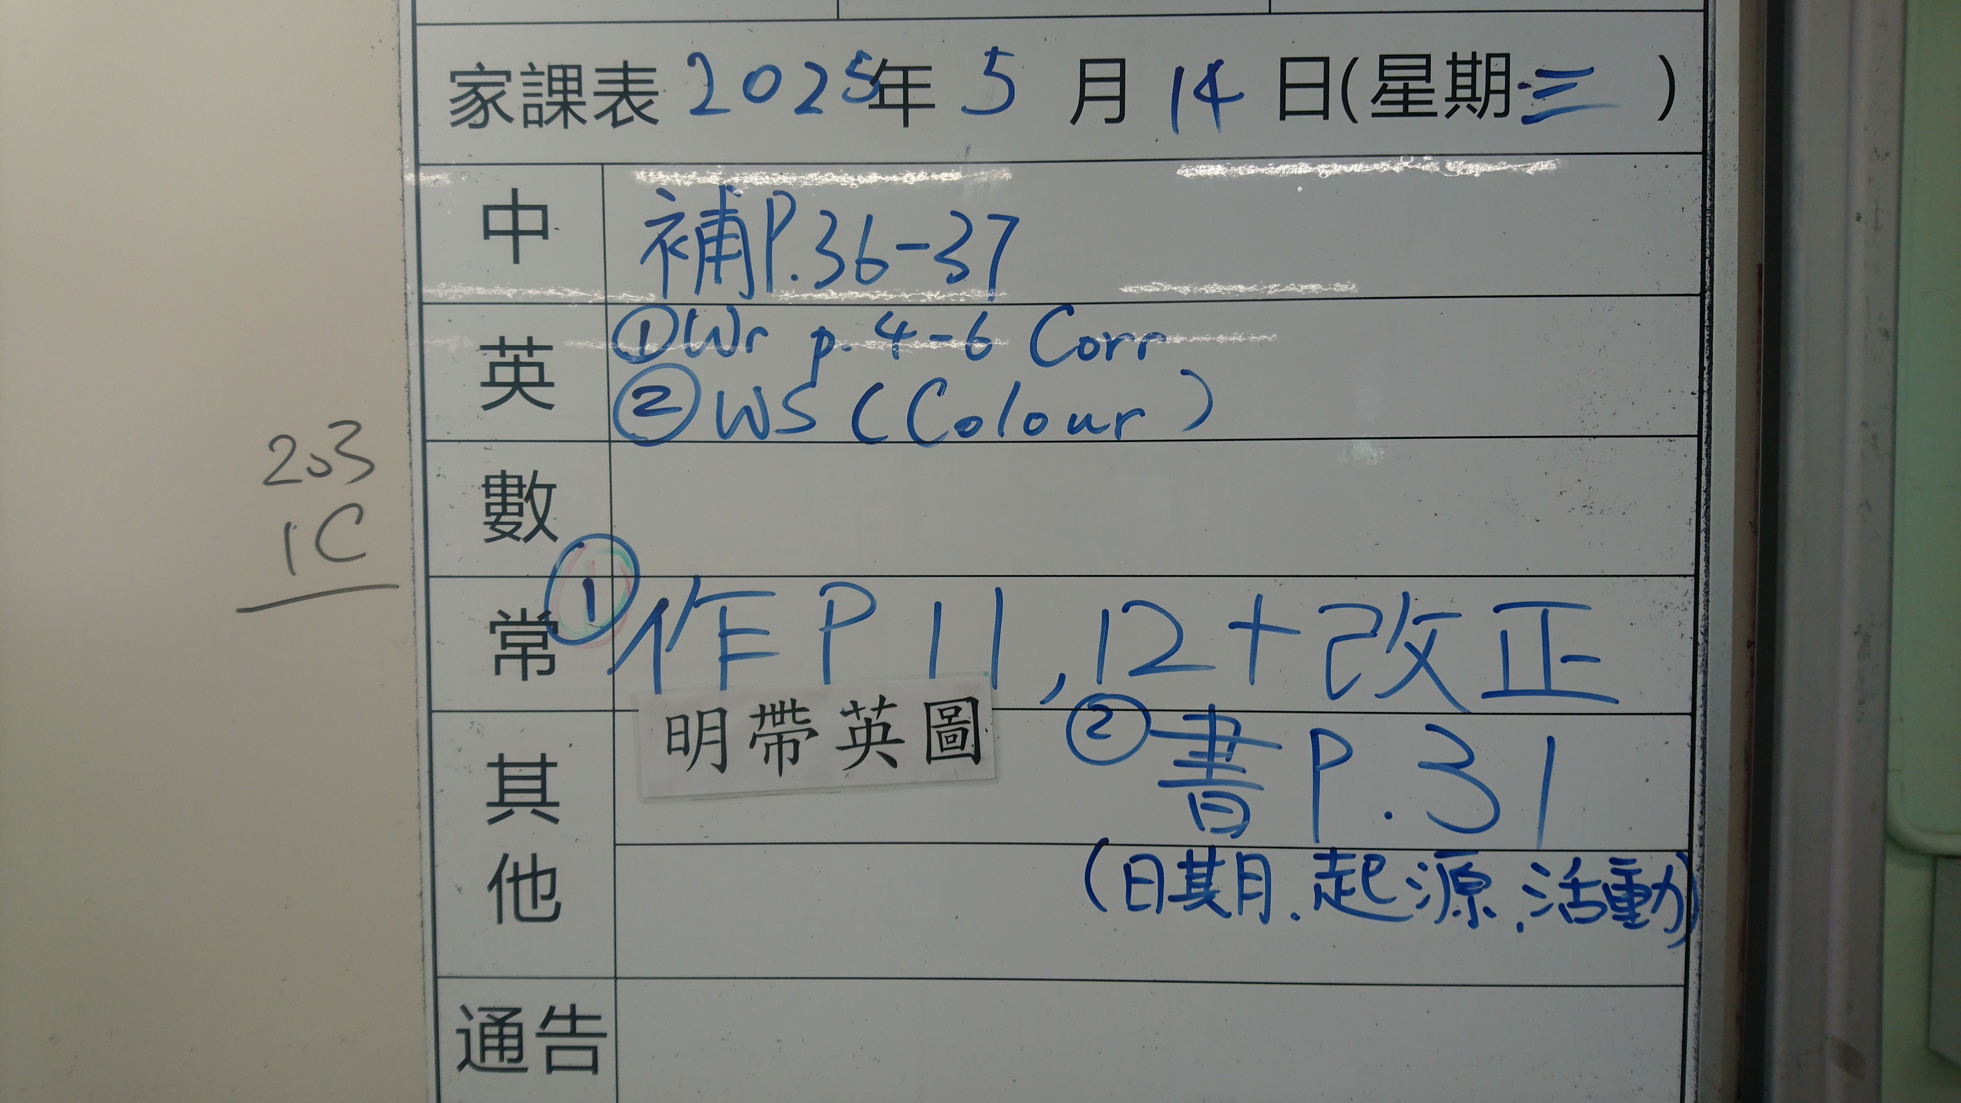 家課表 2025年 5 月 14 日(星期三)
中 補P.36-37
英 ①Wr p.4-6 Corr
②WS (Colour)
數
203
1C
常 ①作P 11,12+改正
其他 明帶英圖 ②書P.31
(日期、起源、活動)
通告